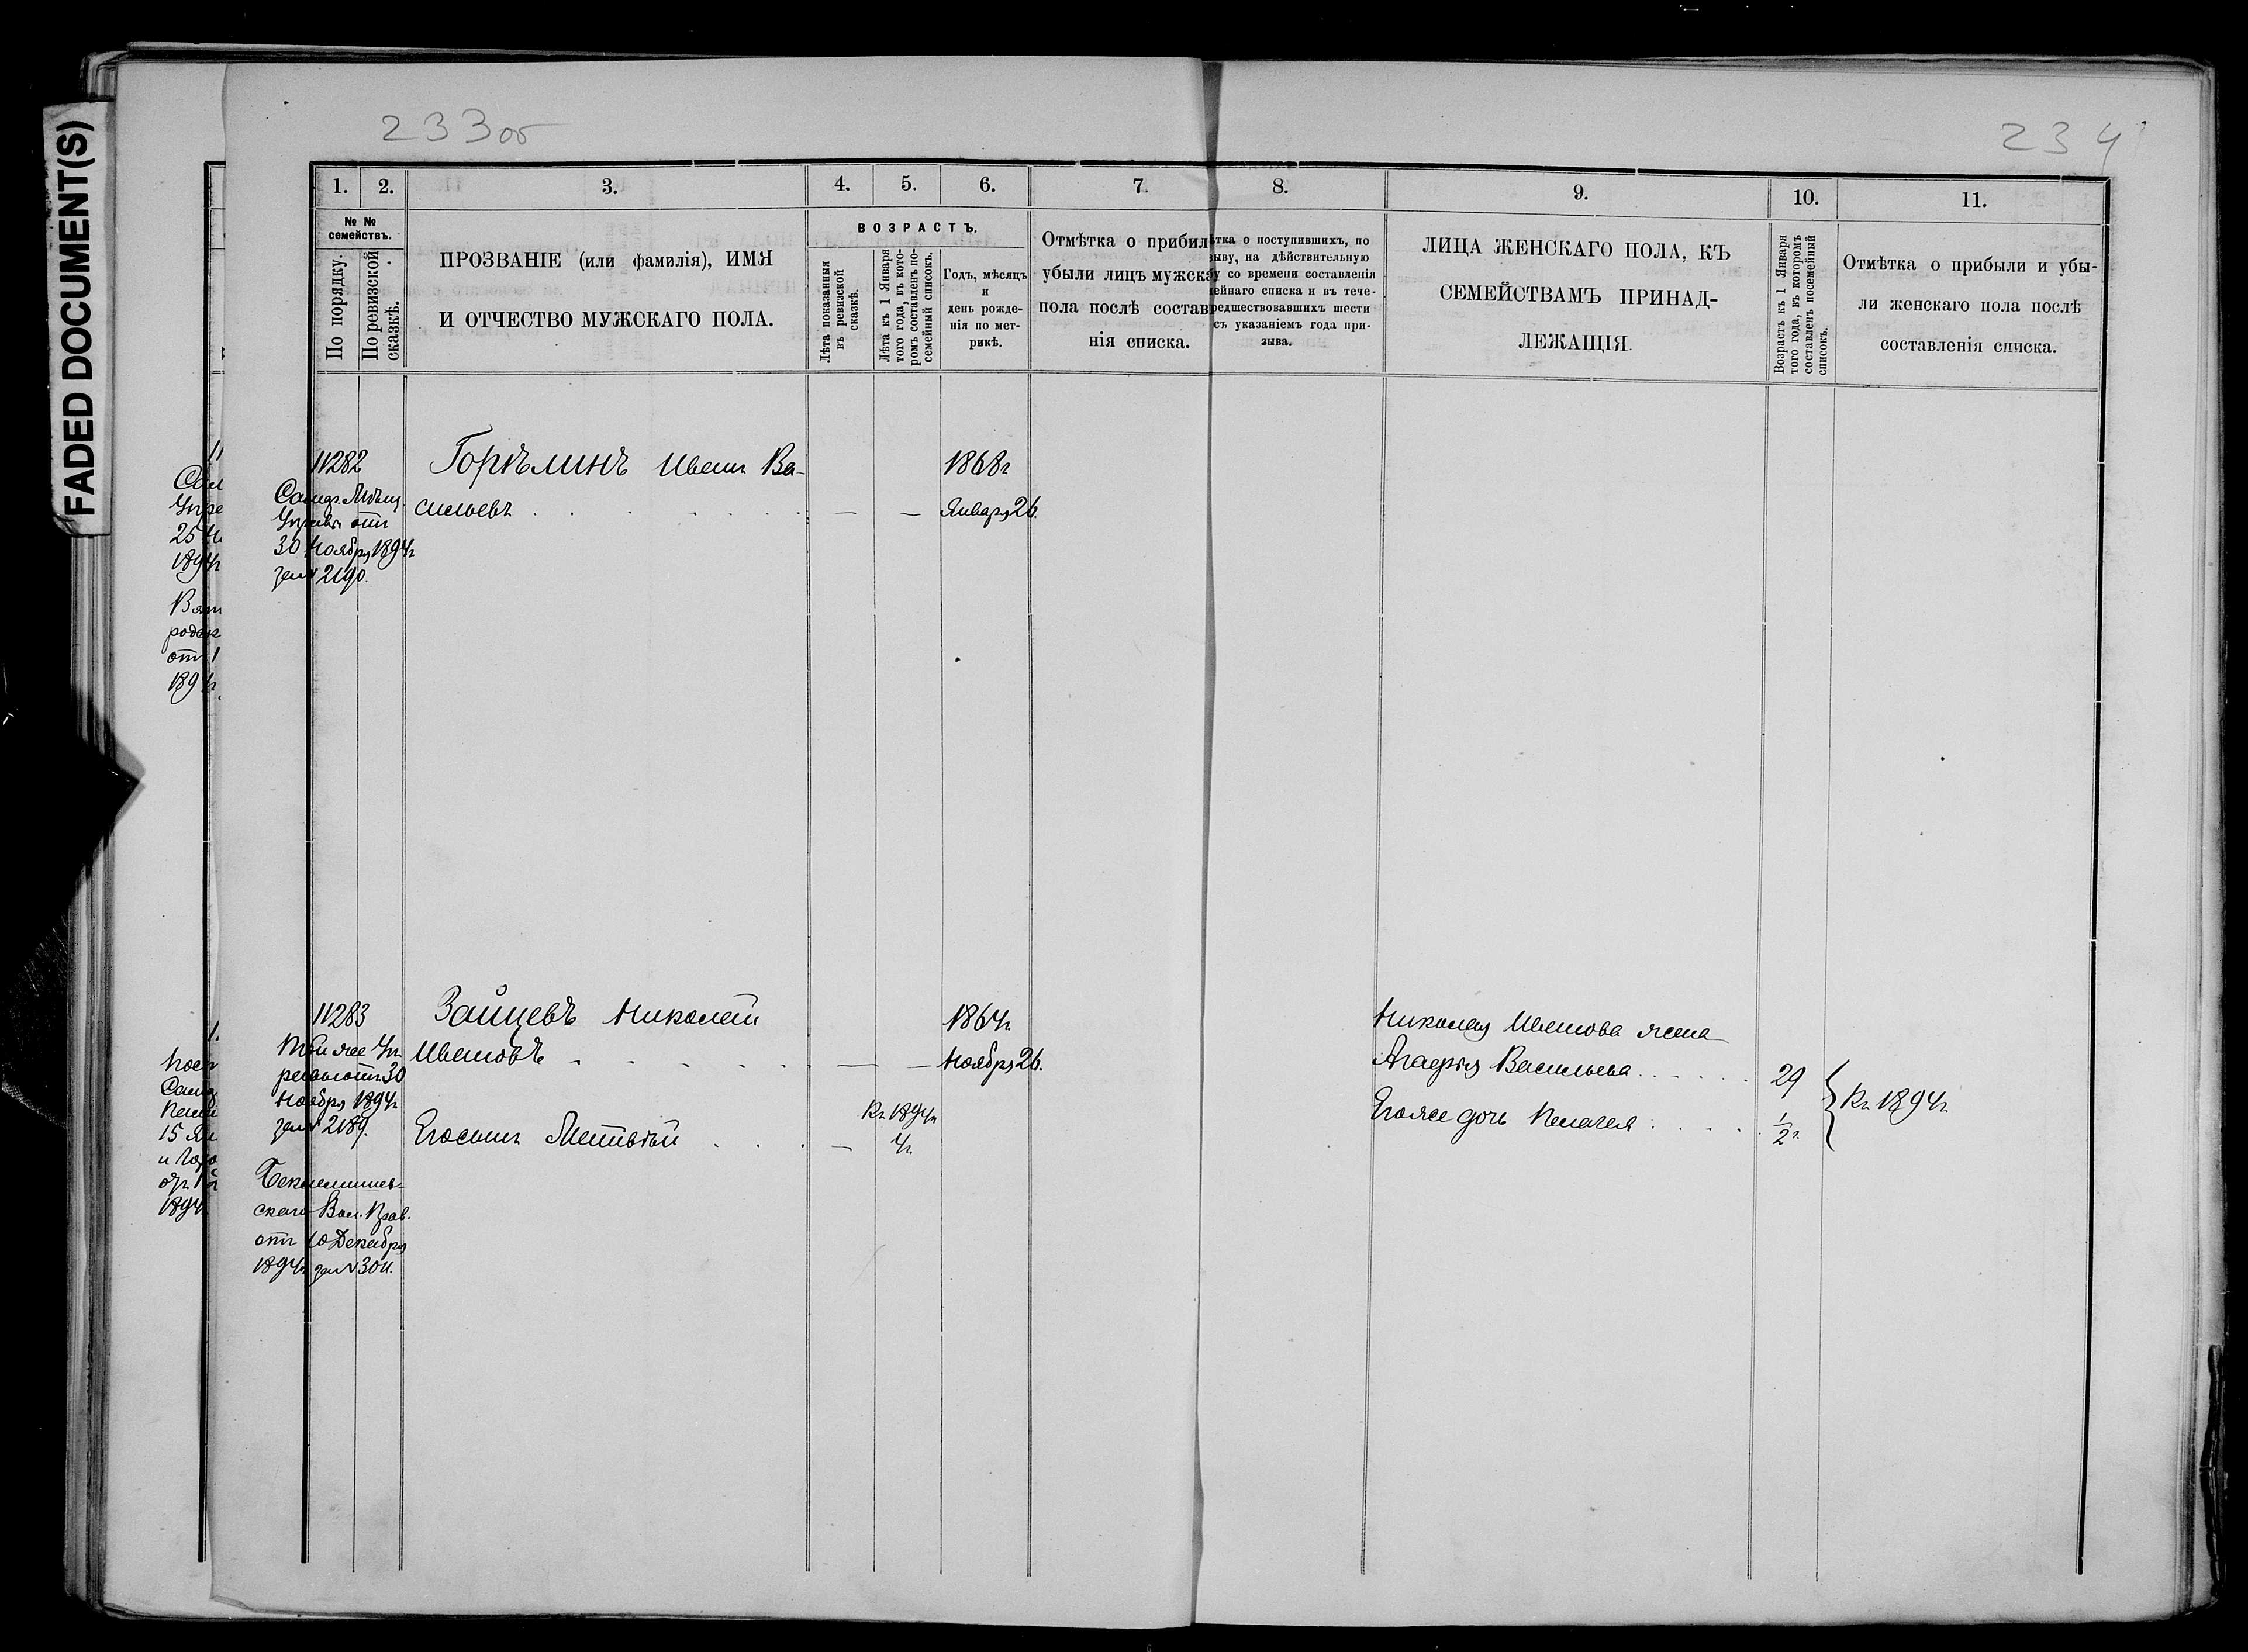 FADED DOCUMENT(S)
233об
234
1.
2.
3.
4.
5.
6.
7.
8.
9.
10.
11.
№ №
семействъ.
По порядку.
По ревизской
сказкѣ.
ПРОЗВАНІЕ (или фамилія), ИМЯ
И ОТЧЕСТВО МУЖСКАГО ПОЛА.
ВОЗРАСТЪ.
Лѣта показанныя
въ ревизской
сказкѣ.
Лѣта къ 1 Января
того года, въ кото-
ромъ составленъ по-
семейный списокъ.
Годъ, мѣсяцъ
и
день рожде-
нія по мет-
рикѣ.
Отмѣтка о прибыл
убыли лицъ мужска
пола послѣ состав
нія списка.
тка о поступившихъ, по
зыву, на дѣйствительную
у со времени составленія
ейнаго списка и въ тече-
редшествовавшихъ шести
съ указаніемъ года при-
зыва.
ЛИЦА ЖЕНСКАГО ПОЛА, КЪ
СЕМЕЙСТВАМЪ ПРИНАД-
ЛЕЖАЩІЯ.
Возрастъ къ 1 Января
того года, въ которомъ
составленъ посемейный
списокъ.
Отмѣтка о прибыли и убы-
ли женскаго пола послѣ
составленія списка.
11282
Самар. Мѣщ.
Управы отъ
30 Ноября 1894г
за № 2190.
Горѣлинъ Иванъ Ва-
сильевъ . . . . . . — —
1868г
Января 26.
11283
Той же Уп
равы отъ 30
Ноября 1894г
за № 2189.
скаго Вол. Прав.
отъ 10 Декабря
1894г за №3011.
Зайцевъ Николай
Ивановъ - - - - . — —
1864г
Ноября 26.
Къ 1894г
Его сынъ Матвѣй . . . — 4г.
Николая Иванова жена
Агафія Васильева . . . . . 29
Его же дочь Пелагея . . . . . 1/2г.
Къ 1894г
25
1894г
отъ 1
1894г
15 Ян
1894г